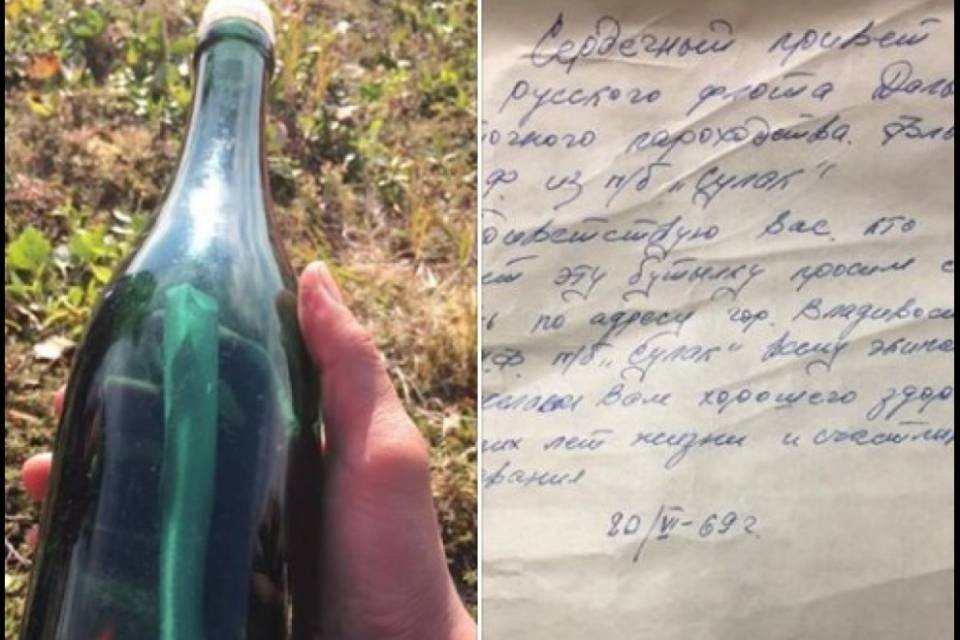 Сердечный привет
русского флота Даль
точного пароходства. Вла
ф из п/б „Сулак“
риветствую Вас, кто
ет эту бутылку просим с
ь по адресу гор. Владивос
.Ф п/б „Сулак“ всему экипа
желаем Вам хорошего здоро
их лет жизни и счастли
вания
20/VI-69г.